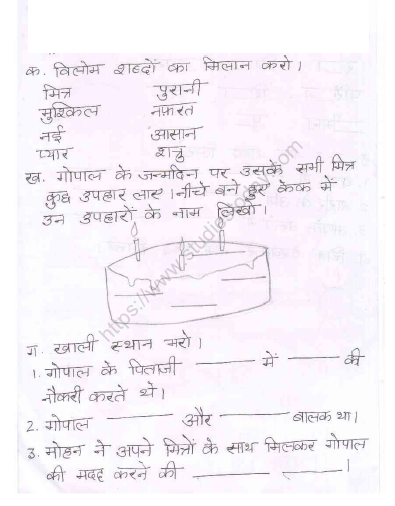 क. विलोम शब्दों का मिलान करो।
मित्र पुरानी
मुश्किल नफ़रत
नई आसान
प्यार शत्रु
ख. गोपाल के जन्मदिन पर उसके सभी मित्र
कुछ उपहार लाए। नीचे बने हुए केक में
उन उपहारों के नाम लिखो।
ग. खाली स्थान भरो।
1. गोपाल के पिताजी ______ में ______ की
नौकरी करते थे।
2. गोपाल ______ और ______ बालक था।
3. मोहन ने अपने मित्रों के साथ मिलकर गोपाल
की मदद करने की ______ ______।